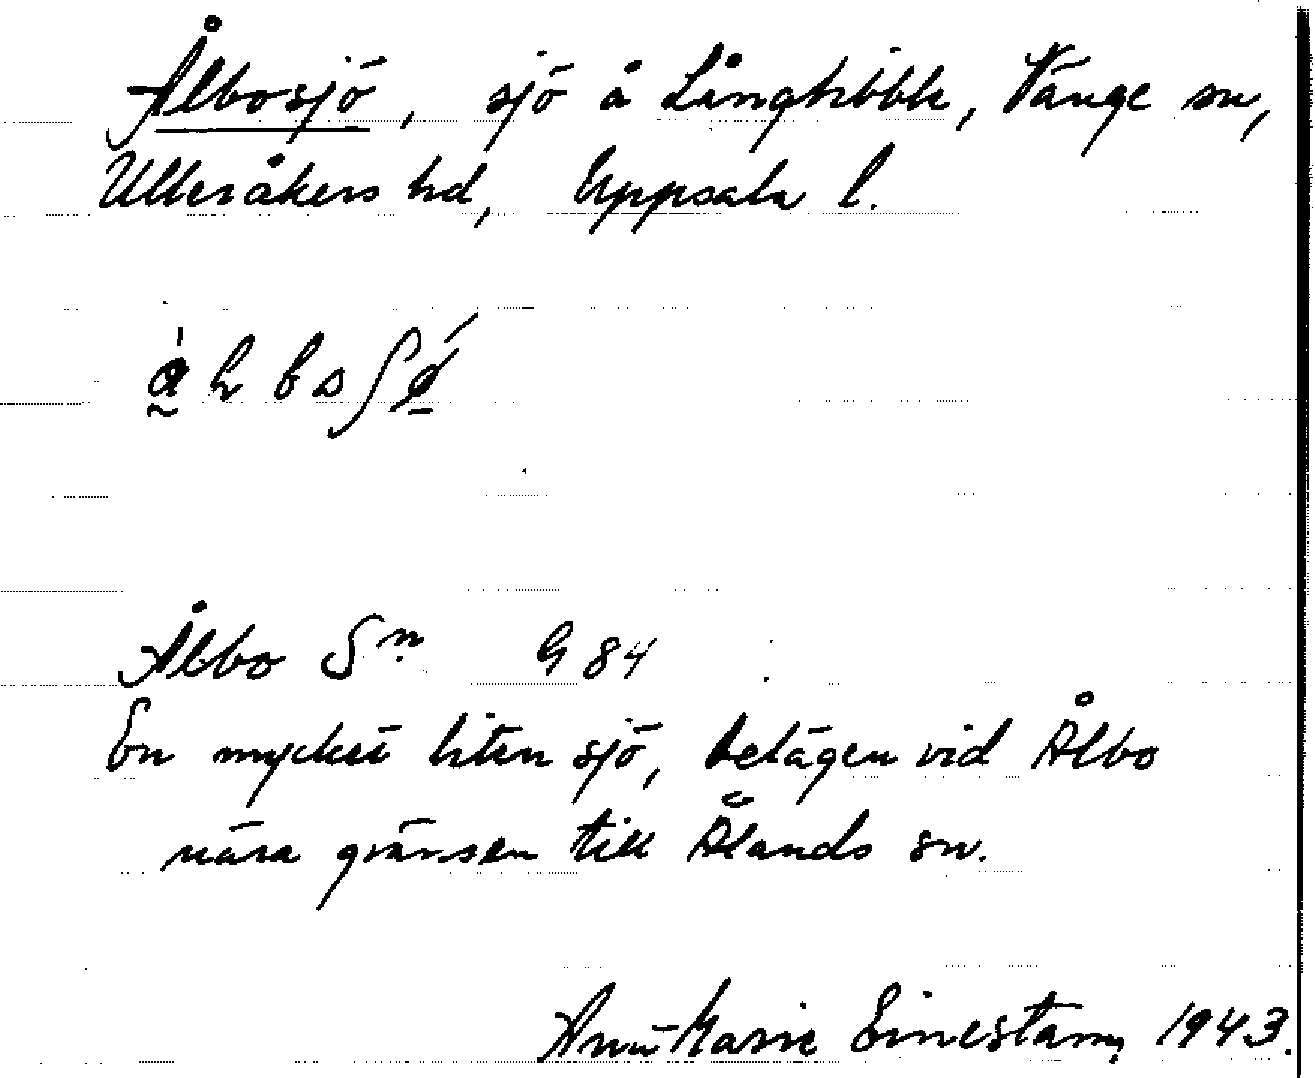 Ålbosjö, sjö å Långtibble, Vänge sn,
Ulleråkers hd, Uppsala l.
Ålbo Sn G 84
En mycket liten sjö, belägen vid Ålbo
nära gränsen till Ålands sn.
Ann-Marie Einestam, 1943.